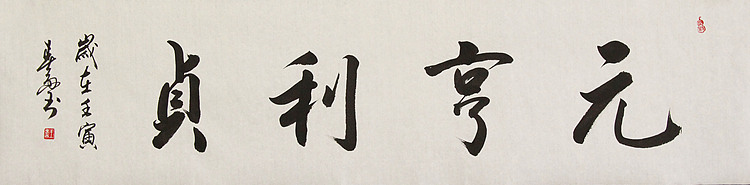 元亨利貞
歲在壬寅